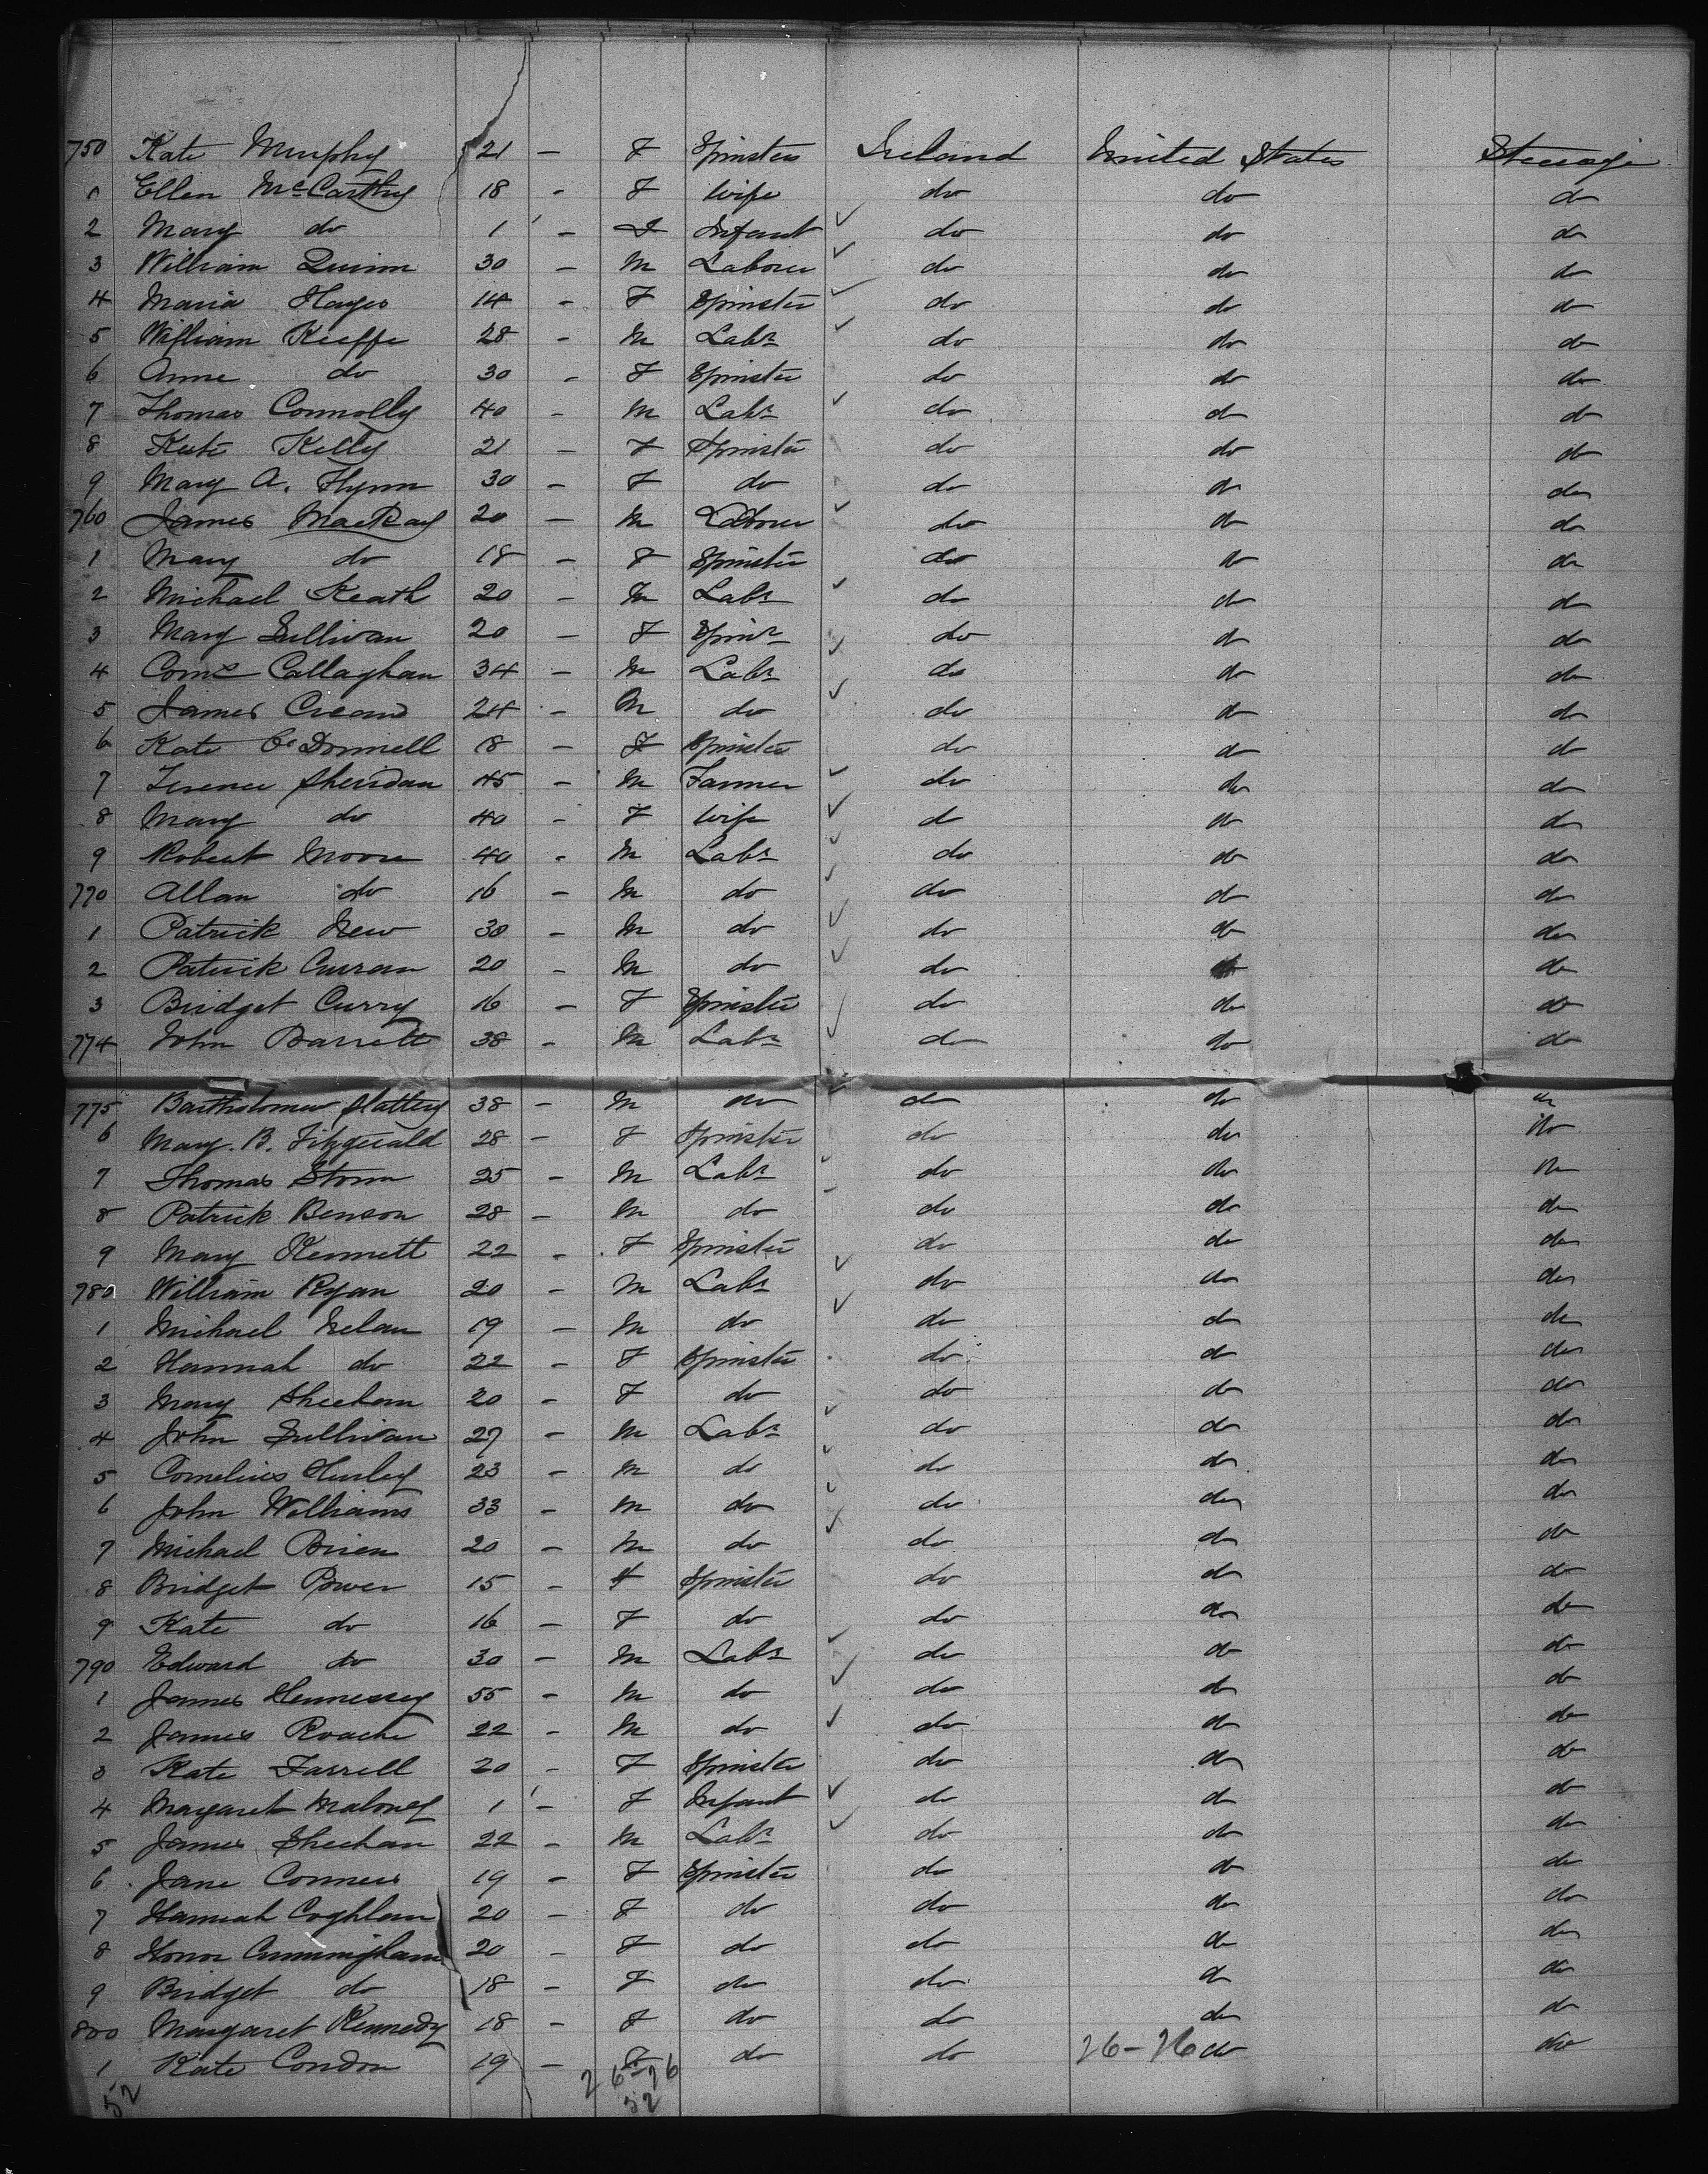 750 Kate Murphy 21 - F Spinster Ireland United States Steerage
1 Ellen McCarthy 18 - F Wife do do do
2 Mary do 1 - F Infant do do do
3 William Quinn 30 - M Laborer do do do
4 Maria Hayes 14 - F Spinster do do do
5 William Keeffe 28 - M Labr do do do
6 Anne do 30 - F Spinster do do do
7 Thomas Connolly 40 - M Labr do do do
8 Kate Kelly 21 - F Spinster do do do
9 Mary A. Flynn 30 - F do do do do
760 James MacKay 20 - M Laborer do do do
1 Mary do 18 - F Spinster do do do
2 Michael Keath 20 - M Labr do do do
3 Mary Sullivan 20 - F Spinr do do do
4 Corns Callaghan 34 - M Labr do do do
5 James 24 - M do do do do
6 Kate O'Donnell 18 - F Spinster do do do
7 Terence Sheridan 45 - M Farmer do do do
8 Mary do 40 - F Wife do do do
9 Robert Moore 40 - M Labr do do do
770 Allan do 16 - M do do do do
1 Patrick New 30 - M do do do do
2 Patrick Curran 20 - M do do do do
3 Bridget Curry 16 - F Spinster do do do
774 John Barrett 38 - M Labr do do do
775 Bartholomew Slattery 38 - M do do do do
6 Mary. B. Fitzgerald 28 - F Spinster do do do
7 Thomas Storm 25 - M Labr do do do
8 Patrick Benson 28 - M do do do do
9 Mary Kennett 22 - F Spinster do do do
780 William Ryan 20 - M Labr do do do
1 Michael Nelan 19 - M do do do do
2 Hannah do 22 - F Spinster do do do
3 Mary Sheehan 20 - F do do do do
4 John Sullivan 27 - M Labr do do do
5 Cornelius Hurley 23 - M do do do do
6 John Williams 33 - M do do do do
7 Michael Brien 20 - M do do do do
8 Bridget Power 15 - F Spinster do do do
9 Kate do 16 - F do do do do
790 Edward do 30 - M Labr do do do
1 James Hennessey 55 - M do do do do
2 James Roache 22 - M do do do do
3 Kate Farrell 20 - F Spinster do do do
4 Margaret Maloney 1 - F Infant do do do
5 James Sheehan 22 - M Labr do do do
6 Jane Conners 19 - F Spinster do do do
7 Hannah Coghlan 20 - F do do do do
8 Honor Cunningham 20 - F do do do do
9 Bridget do 18 - F do do do do
800 Margaret Kennedy 18 - F do do do do
1 Kate Condon 19 - F do do 26-26 do do
52 26-26
52